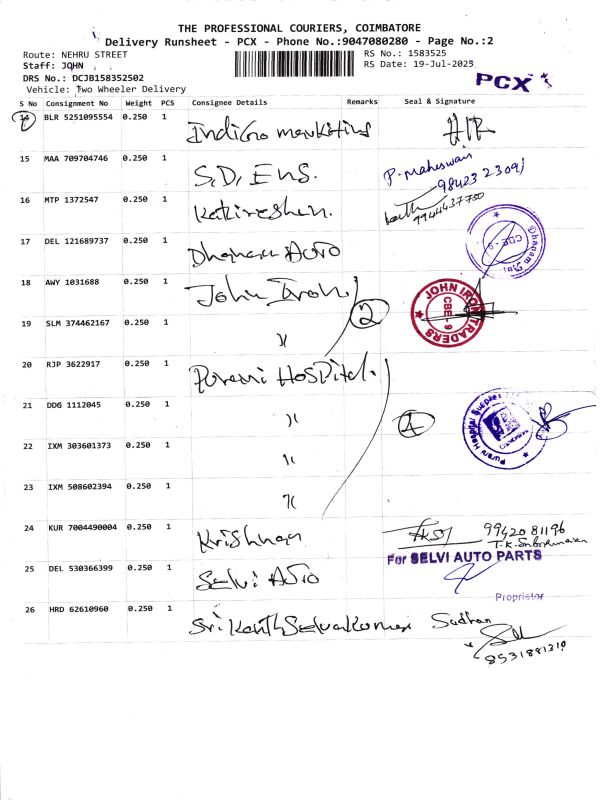 THE PROFESSIONAL COURIERS, COIMBATORE
Delivery Runsheet - PCX - Phone No.:9047080280 - Page No.:2
Route: NEHRU STREET
RS No.: 1583525
Staff: JOHN
RS Date: 19-Jul-2025
DRS No.: DCJB158352502
PCX
Vehicle: Two Wheeler Delivery
S No Consignment No Weight PCS Consignee Details Remarks Seal & Signature
14 BLR 5251095554 0.250 1 Indigo
15 MAA 709704746 0.250 1 S.D. Ens. P. Maheswari
98423 23091
16 MTP 1372547 0.250 1 Katireshen.
7944437750
17 DEL 121689737 0.250 1 Dhanam Auto
Dhanam
CBE - 9
18 AWY 1031688 0.250 1 John Iron.
2
JOHN IRON TRADERS
CBE - 9
19 SLM 374462167 0.250 1 "
20 RJP 3622917 0.250 1 Purani Hospital.
21 DDG 1112045 0.250 1 "
4
Purani Hospital Supplies
22 IXM 303601373 0.250 1 "
23 IXM 508602394 0.250 1 "
24 KUR 7004490004 0.250 1 Krishnan 99420 81196
T.K. Subramanian
25 DEL 530366399 0.250 1 Selvi Auto For SELVI AUTO PARTS
Proprietor
26 HRD 62610960 0.250 1 Sri Kanth Selvakumar Sudhan
8531881310